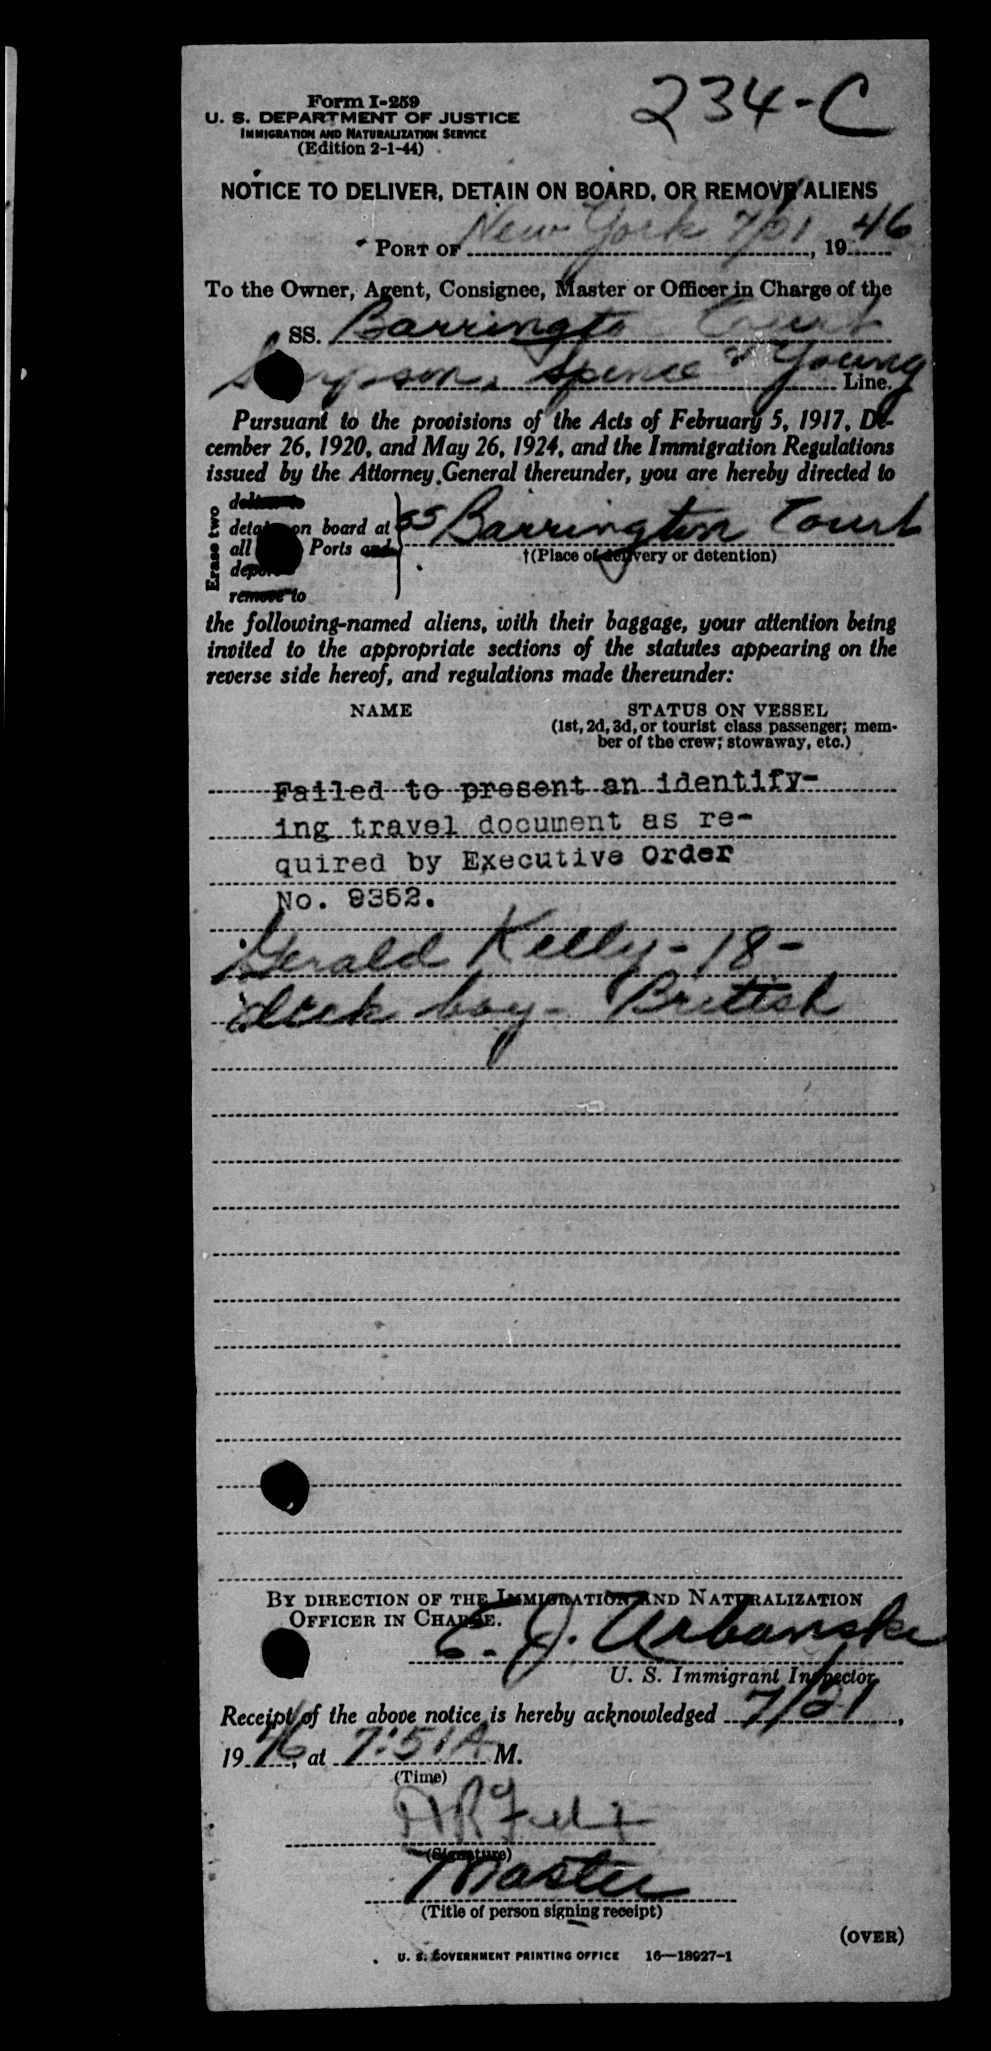 234-C
Form I-259
U. S. DEPARTMENT OF JUSTICE
IMMIGRATION AND NATURALIZATION SERVICE
(Edition 2-1-44)
NOTICE TO DELIVER, DETAIN ON BOARD, OR REMOVE ALIENS
PORT OF New York 7/21, 1946
To the Owner, Agent, Consignee, Master or Officer in Charge of the
SS. Barrington Court
Simpson, Spence & Young Line.
Pursuant to the provisions of the Acts of February 5, 1917, De-
cember 26, 1920, and May 26, 1924, and the Immigration Regulations
issued by the Attorney General thereunder, you are hereby directed to
Erase two
deliver to
detain on board at
all Ports and
deport
remove to
SS Barrington Court
†(Place of delivery or detention)
the following-named aliens, with their baggage, your attention being
invited to the appropriate sections of the statutes appearing on the
reverse side hereof, and regulations made thereunder:
NAME STATUS ON VESSEL
(1st, 2d, 3d, or tourist class passenger; mem-
ber of the crew; stowaway, etc.)
Failed to present an identify-
ing travel document as re-
quired by Executive Order
No. 9352.
Gerald Kelly - 18 -
deck boy - British
BY DIRECTION OF THE IMMIGRATION AND NATURALIZATION
OFFICER IN CHARGE.
E. J. Urbanski
U. S. Immigrant Inspector.
Receipt of the above notice is hereby acknowledged 7/21,
1946, at 7:51 A M.
(Time)
(Signature)
Master
(Title of person signing receipt)
(OVER)
U. S. GOVERNMENT PRINTING OFFICE 16—18927-1